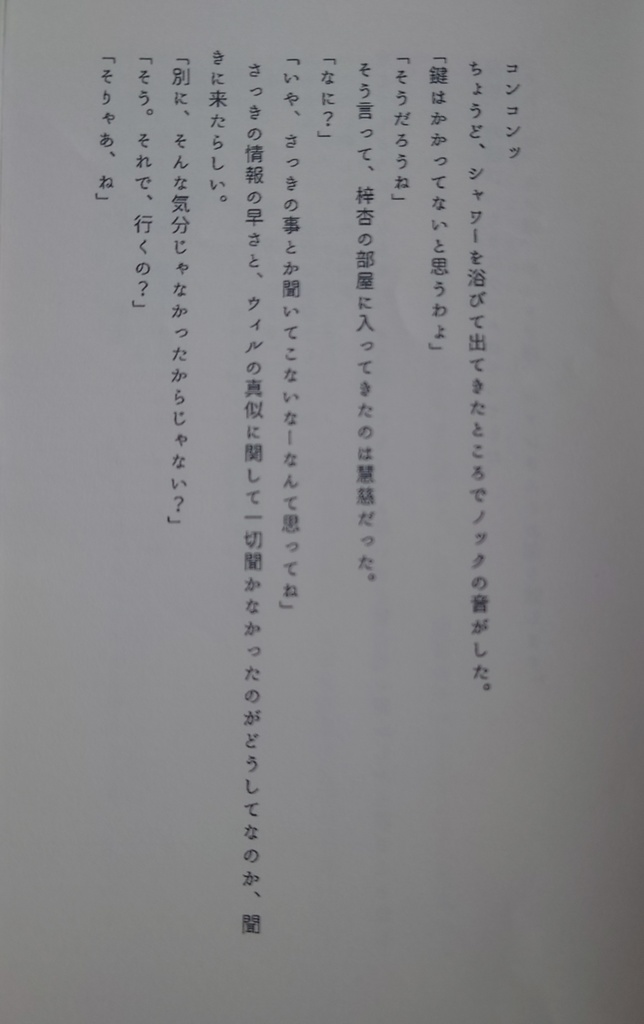 コンコンッ
ちょうど、シャワーを浴びて出てきたところでノックの音がした。
「鍵はかかってないと思うわよ」
「そうだろうね」
そう言って、梓杏の部屋に入ってきたのは慧慈だった。
「なに？」
「いや、さっきの事とか聞いてこないなーなんて思ってね」
さっきの情報の早さと、ウィルの真似に関して一切聞かなかったのがどうしてなのか、聞
きに来たらしい。
「別に、そんな気分じゃなかったからじゃない？」
「そう。それで、行くの？」
「そりゃあ、ね」